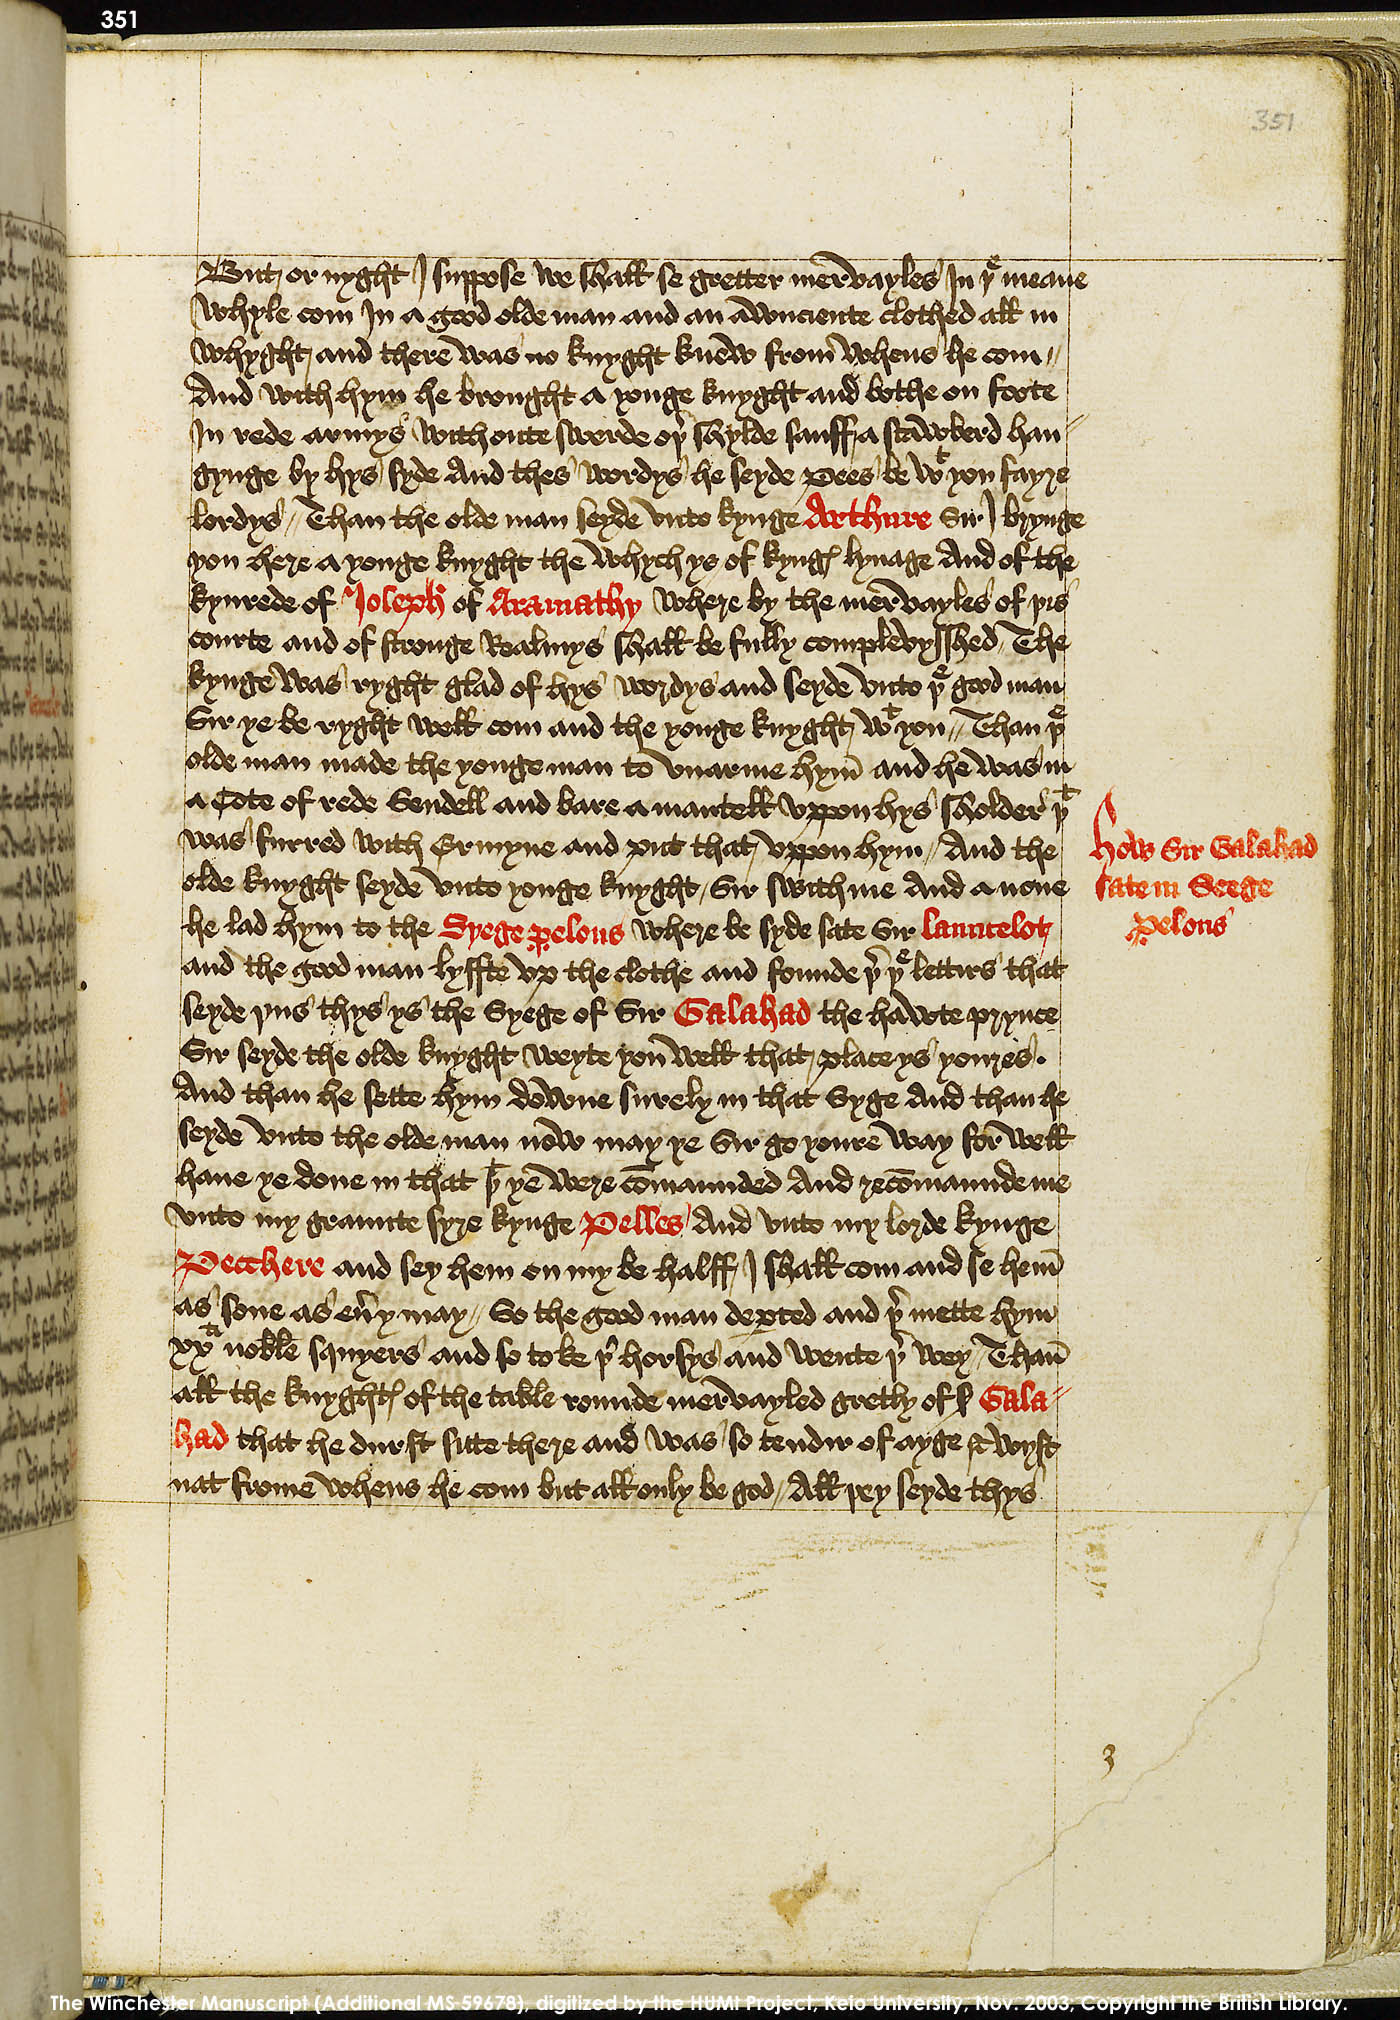 351
351
But or nyght I suppose we shall se gretter mervayles In þe meane
whyle com In a good olde man and an awnciente clothed all in
whyght and there was no knyght knew from whens he com //
And with hym he brought a yonge knyght and bothe on foote
In rede armys with oute swerde oþr shylde sauff a scawberd han-
gynge by hys syde And thes wordys he seyde Pees be wt you fayre
lordys // Than the olde man seyde vnto kynge Arthure Sir I brynge
you here a yonge knyght the whych ys of kyngꝭ lynage And of the
kynrede of Joseph of Aramathy where by the mervayles of þis
courte and of stronge Realmys shall be fully complevysshed / The
kynge was ryght glad of hys wordys and seyde vnto þe good man
Sir ye be ryght well com and the yonge knyght wt you // Than þe
olde man made the yonge man to vnarme hym̄ and he was in
a Cote of rede Sendell and bare a mantell vppon hys sholder þt
was furred with Ermyne and put that vppon hym / And the
olde knyght seyde vnto yonge knyght / Sir swith me And a none
he lad hym to the Syege ꝑelous where be syde sate Sir launcelot
and the good man lyffte vp the clothe and founde þr þe lettirs that
seyde þus thys ys the Syege of Sir Galahad the hawte prynce
Sir seyde the olde knyght weyte you well that place ys youres .
And than he sette hym downe surely in that Syge And than he
seyde vnto the olde man now may ye Sir go youre way for well
haue ye done in that þt ye were com̄aunded And recom̄aunde me
vnto my graunte syre kynge Pelles And vnto my lorde kynge
Pecchere and sey hem on my be halff / I shall com and se hem̄
as sone as eu̾ y may // So the good man deꝑted and þr mette hym
xxti noble squyers and so toke þr horsys and wente þr wey / Than̄
all the knyghtꝭ of the table rounde mervayled gretly of ẜ Gala-
had that he durst sitte there and was so tendir of ayge & wyst
nat frome whens he com but all only be god / All þey seyde thys
How Sir Galahad
sate in Seege
ꝑelous
3
The Winchester Manuscript (Additional MS 59678), digitized by the HUMI Project, Keio University, Nov. 2003, Copyright the British Library.